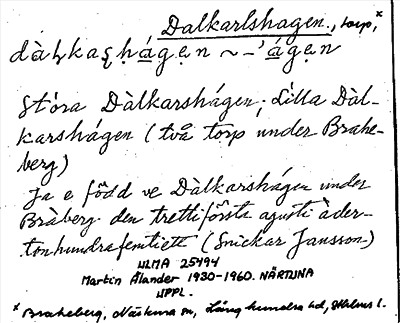 Dalkarlshagen., torp,ˣ
dàḷkaʂhágen ~ –'ágen
Stóra Dàlkarshágen; Lilla Dàl-
karshágen (två torp under Brahe-
berg)
Ja e född ve Dàlkarshágen under
Bràberg den trettiförsta agusti àder-
tonhundrafemtiett (Snickar Jansson)
ULMA 25494
Martin Ålander 1930-1960. NÄRTUNA
UPPL.
ˣ Braheberg, Närtuna sn, Långhundra hd, Sthlms l.